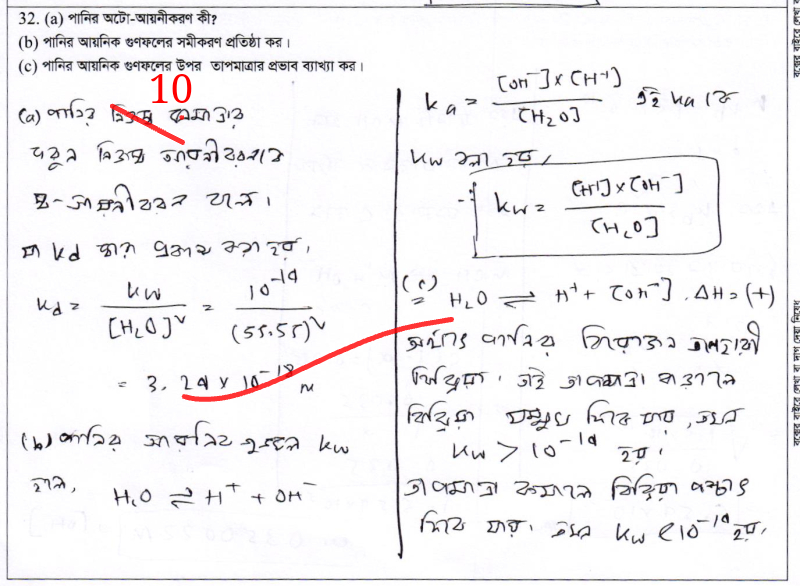 32. (a) পানির অটো-আয়নীকরণ কী?
(b) পানির আয়নিক গুণফলের সমীকরণ প্রতিষ্ঠা কর।
(c) পানির আয়নিক গুণফলের উপর তাপমাত্রার প্রভাব ব্যাখ্যা কর।
10
(a) পানির
নিজস্ব আয়নীকরণকে
স্ব-আয়নীকরণ বলে।
যা Kd দ্বারা প্রকাশ করা হয়।
Kd = Kw / [H₂O]² = 10⁻¹⁴ / (55.55)²
= 3.24 × 10⁻¹⁸ M
(b) পানির আয়নিক গুণফল Kw
হলে,
H₂O ⇌ H⁺ + OH⁻
Ka = [OH⁻] × [H⁺] / [H₂O] এই Ka কে
Kw বলা হয়,
∴ Kw = [H⁺] × [OH⁻] / [H₂O]
(c) H₂O ⇌ H⁺ + [OH⁻]. ΔH = (+)
অর্থাৎ পানির বিয়োজন তাপহারী
বিক্রিয়া। তাই তাপমাত্রা বাড়ালে
বিক্রিয়া সম্মুখ দিকে যায়, তখন
Kw > 10⁻¹⁴ হয়।
তাপমাত্রা কমালে বিক্রিয়া পশ্চাৎ
দিকে যায়। তখন Kw < 10⁻¹⁴ হয়।